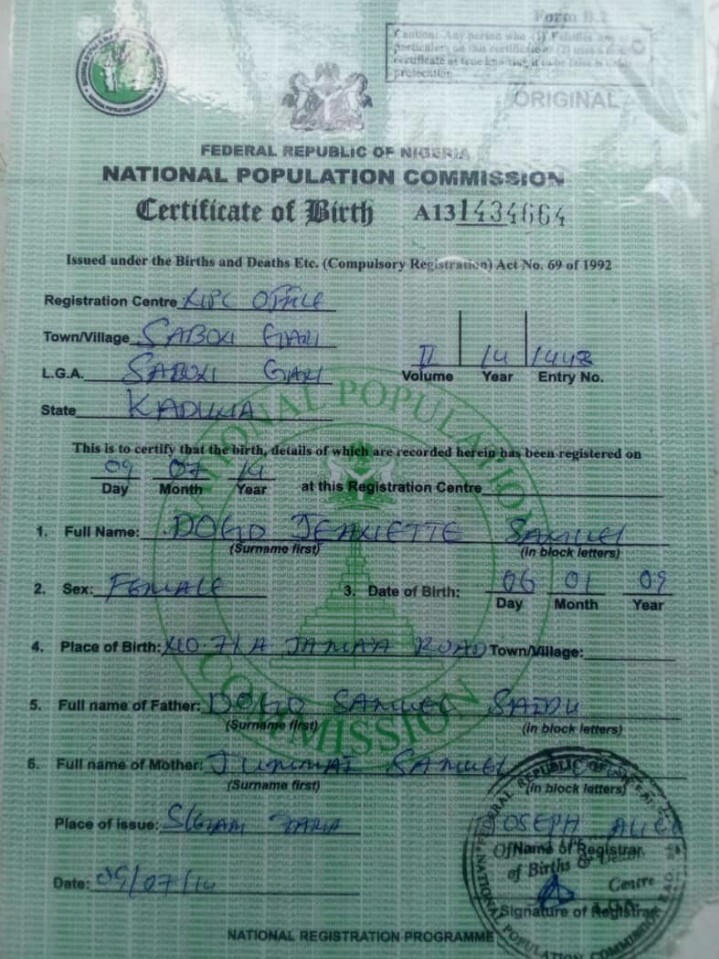 Form B.1
Caution: Any person who (1) Falsifies any
particulars on this certificate or (2) uses a
certificate as true knowing it to be false is liable to
prosecution
ORIGINAL
FEDERAL REPUBLIC OF NIGERIA
NATIONAL POPULATION COMMISSION
Certificate of Birth A131434664
Issued under the Births and Deaths Etc. (Compulsory Registration) Act No. 69 of 1992
Registration Centre NPC OFFICE
Town/Village SABON GARI
L.G.A. SABON GARI
II 14 1448
Volume Year Entry No.
State KADUNA
This is to certify that the birth, details of which are recorded herein has been registered on
09 07 14
Day Month Year at this Registration Centre
1. Full Name: DOGO JENNETTE SAMUEL
(Surname first) (in block letters)
2. Sex: FEMALE 3. Date of Birth: 06 01 09
Day Month Year
4. Place of Birth: NO. 71A ROAD Town/Village:
5. Full name of Father: DOGO SAMUEL
(Surname first) (in block letters)
6. Full name of Mother: JUMMAI SAMUEL
(Surname first) (in block letters)
Place of issue:
JOSEPH ALICE
Name of Registrar
Date: 09/07/14
Signature of Registrar
NATIONAL REGISTRATION PROGRAMME
NATIONAL POPULATION COMMISSION